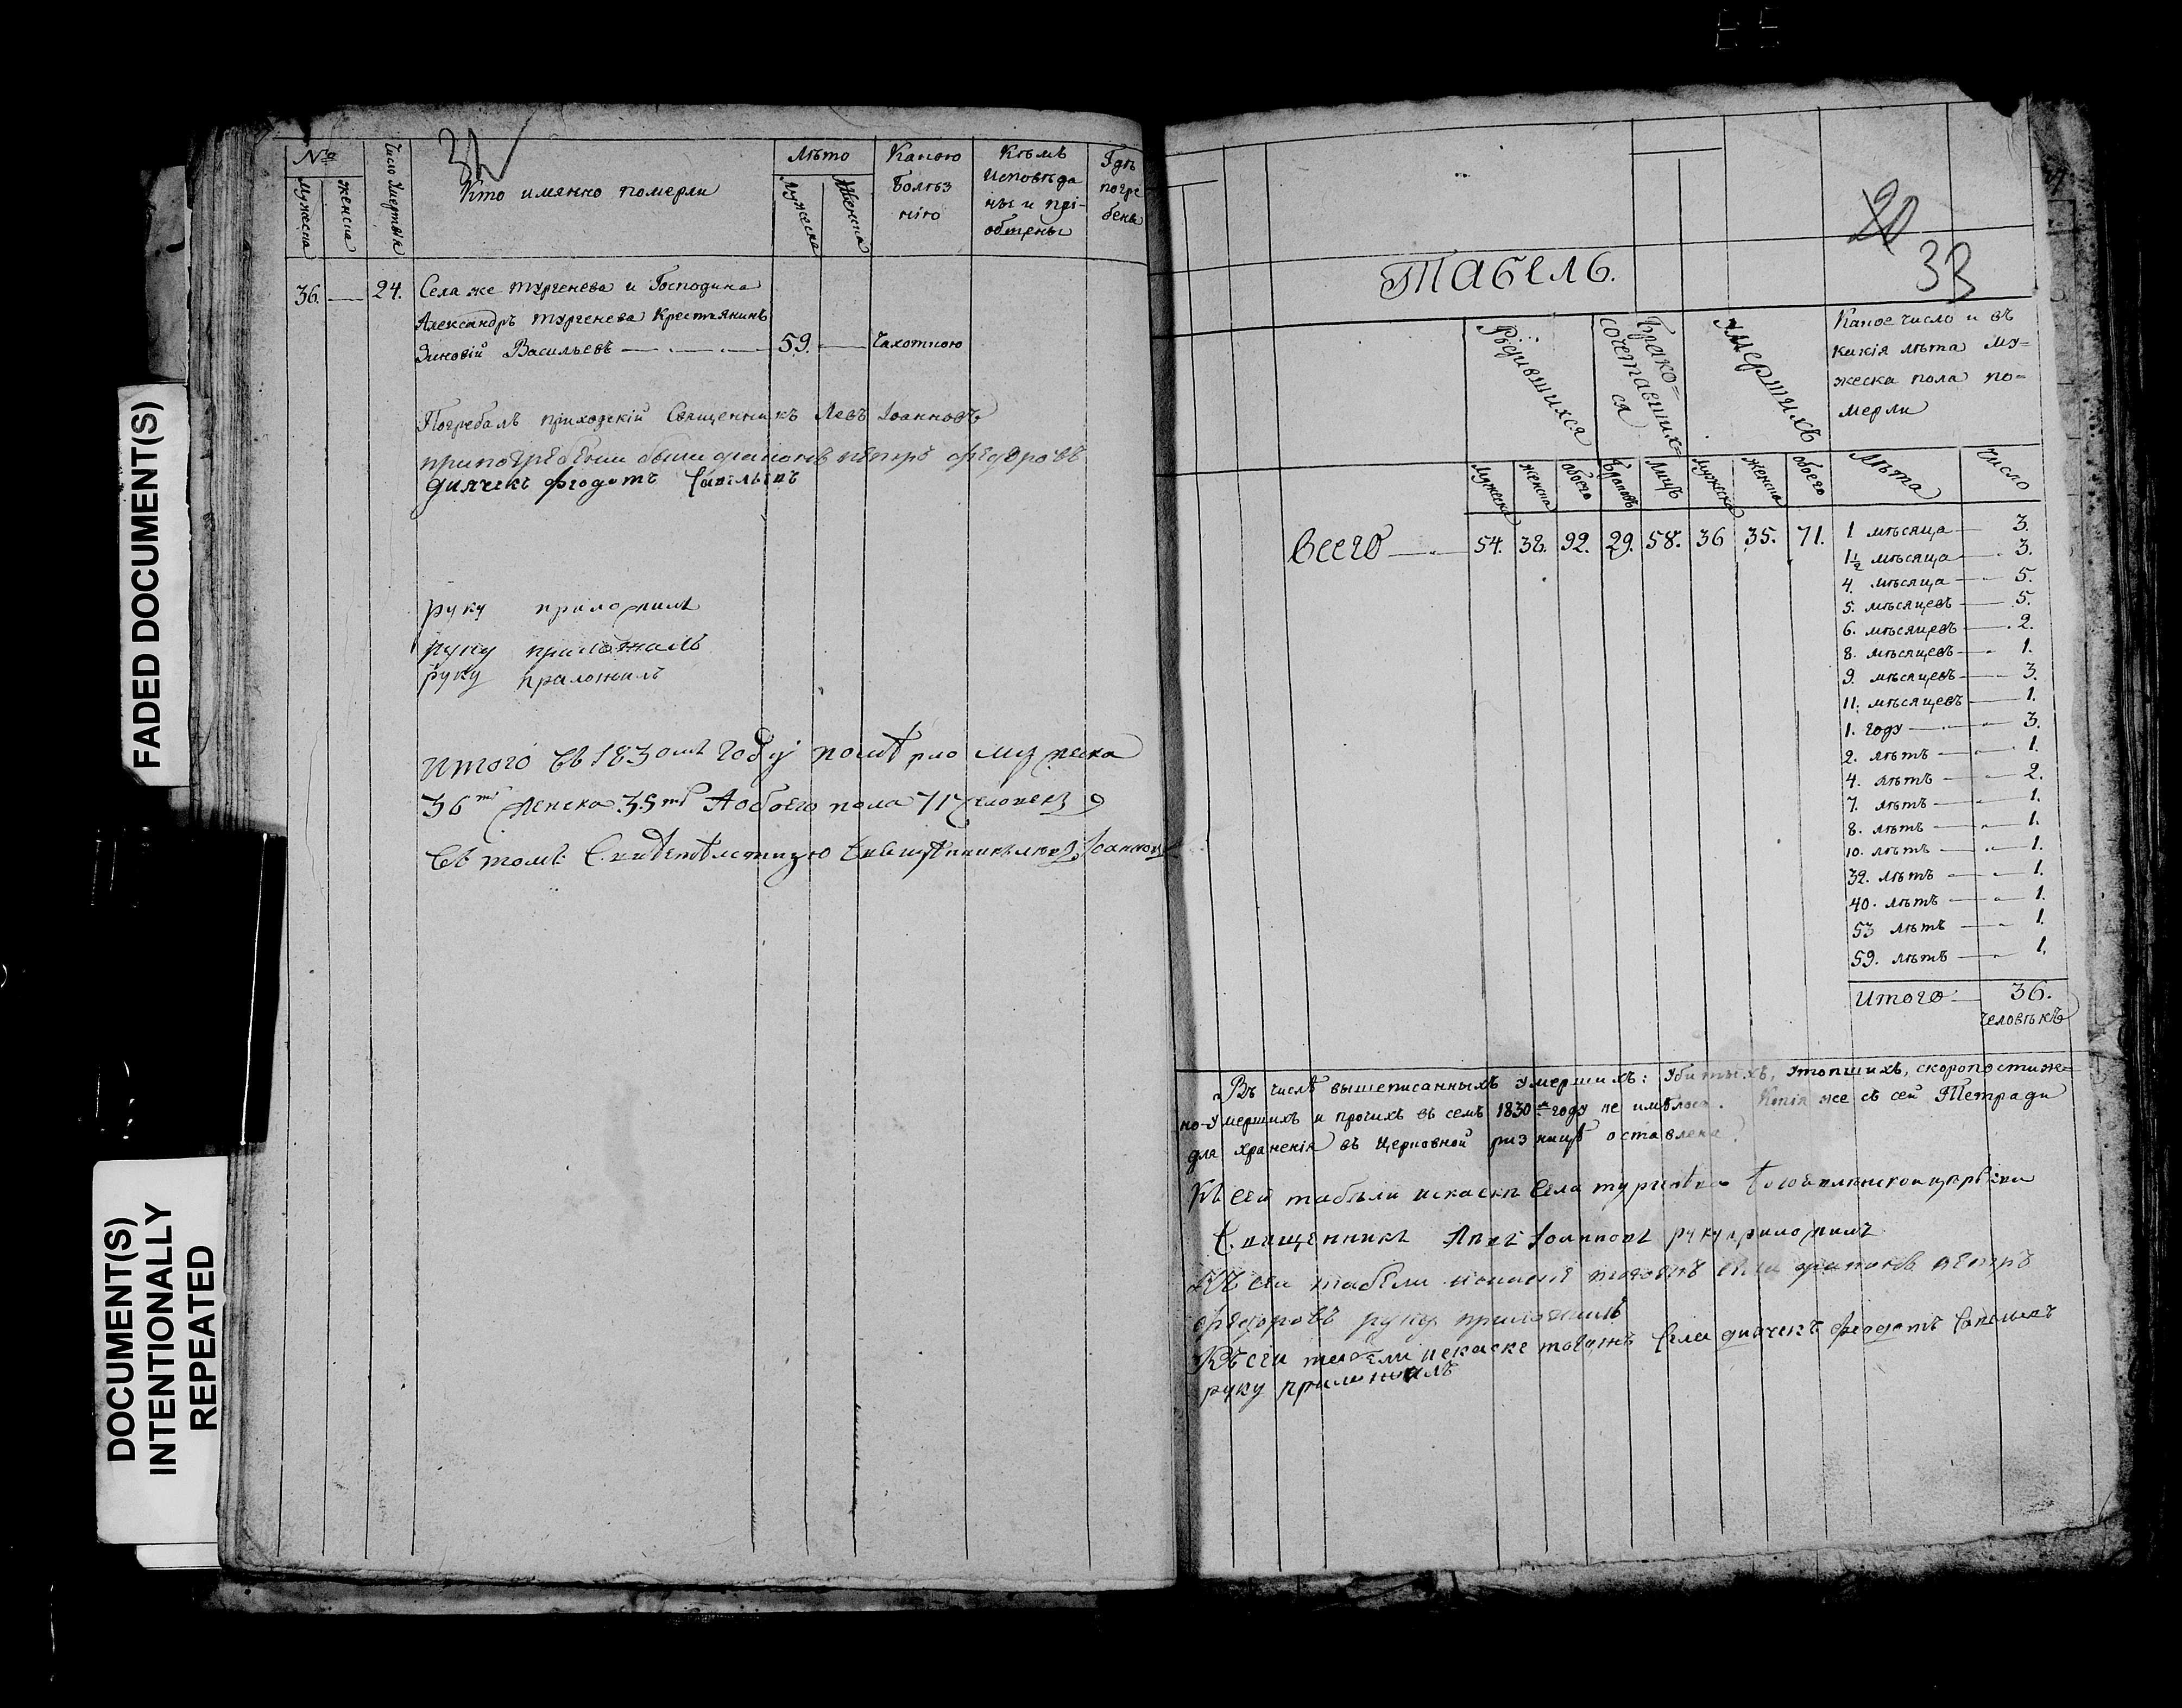 FADED DOCUMENT(S)
DOCUMENT(S)
INTENTIONALLY
REPEATED
32
№
Мужеска
женска
Число Умертвія
Кто имянно померли
Лѣто
Мужеска
Женска
Какою
Болѣз
нію
Кѣмъ
Исповѣда
ны и прі-
обтены
Гдѣ
погре
бены
36. 24. Села же Тургенева и Господина
Александръ Тургенева Крестьянинъ
Зиновій Васильевъ 59. Чахоткою
Погребалъ приходскій Священникъ Левъ Іоанновъ
при погребении были диаконъ петръ федоровъ
дьячекъ феодотъ
руку приложилъ
руку приложилъ
руку приложилъ
итого въ 1830мъ году помѣрло мужеска
36ть женска 35ть А обоего пола 71 человекъ
въ томъ Свидѣтелствую Священникъ левъ Іоанновъ
20
33
Табель.
Родившихся
Брако=
сочетавших-
ся
Умершихъ
Какое число и въ
какія лѣта му=
жеска пола по=
мерли
Мужеска
женска
обоего
Браковъ
Лицъ
Мужеска
женска
обоего
Лѣта
Число
Всего 54. 38. 92. 29. 58. 36 35. 71.
1 мѣсяца 3.
1½ мѣсяца 3.
4. мѣсяца 5.
5. мѣсяцевъ 5.
6. мѣсяцевъ 2.
8. мѣсяцевъ 1.
9. мѣсяцевъ 3.
11. мѣсяцевъ 1.
1. году 3.
2. лѣтъ 1.
4. лѣтъ 2.
7. лѣтъ 1.
8. лѣтъ 1.
10. лѣтъ 1.
32. лѣтъ 1.
40. лѣтъ 1.
53 лѣтъ 1.
59. лѣтъ 1.
Итого 36.
человѣкъ
Въ числѣ вышеписанныхъ умершихъ: Убитыхъ, утопшихъ, скоропостиже=
но-умершихъ и прочихъ въ семъ 1830м году не имѣлось. Копія же съ сей Тетради
для храненія въ Церковной ризницѣ оставлена.
Къ сей табѣли села
Священникъ Левъ Іоанновъ руку приложилъ
Къ сеи табели тогожъ села диаконъ петръ
федоровъ руку приложилъ
Къ сеи табели тогожъ села дьячекъ феодотъ
руку приложилъ